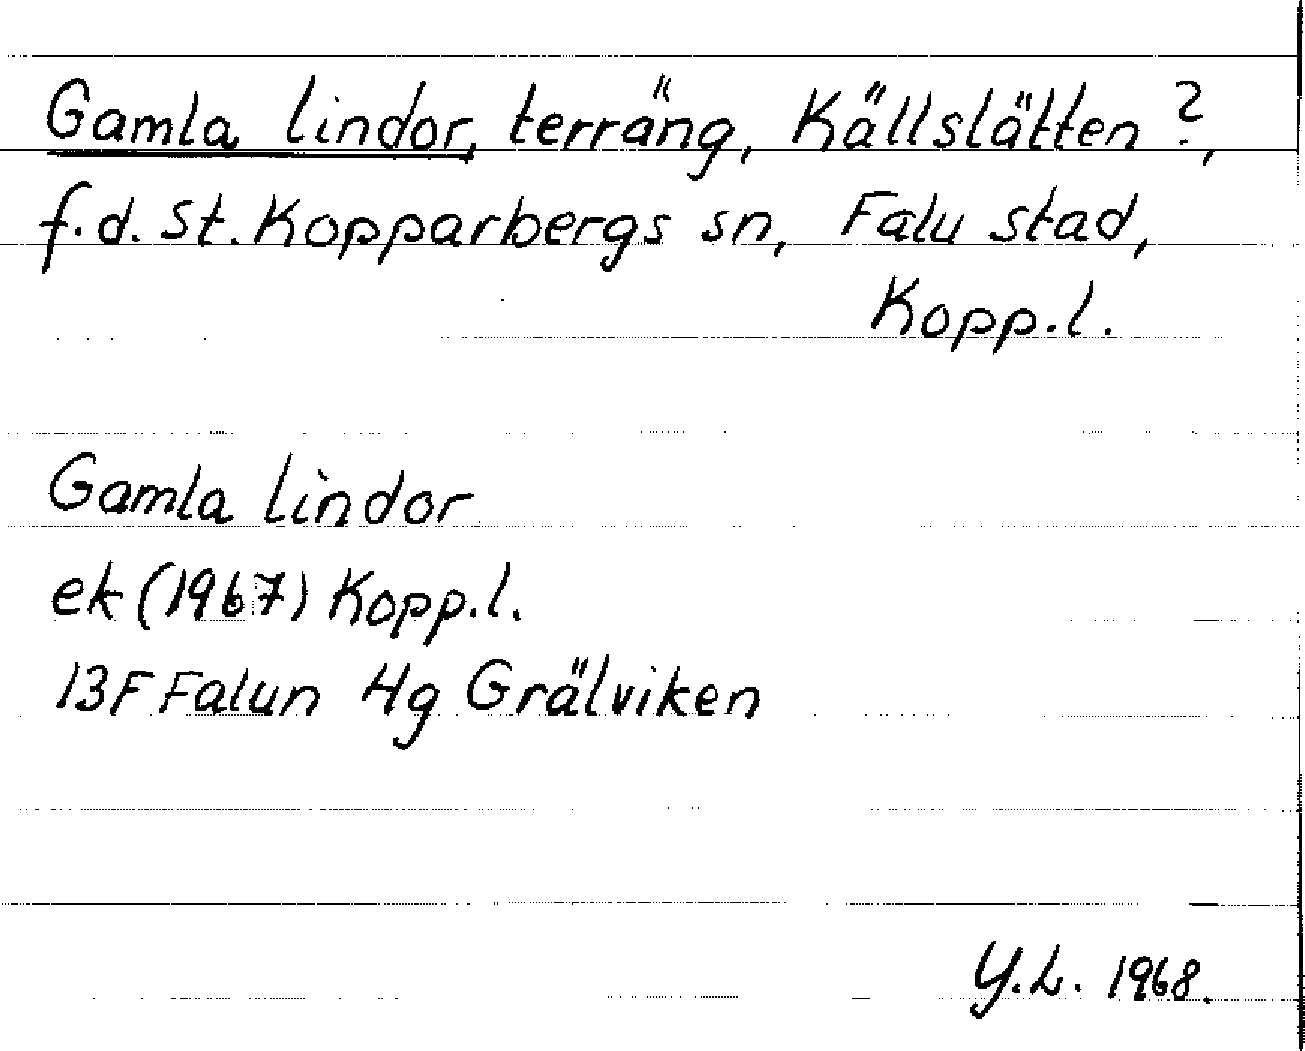 Gamla lindor, terräng, Källslätten ?,
f.d. St. Kopparbergs sn, Falu stad,
Kopp.l.
Gamla lìndor
ek (1967) Kopp.l.
13F Falun 4g Grälviken
Y.L. 1968.